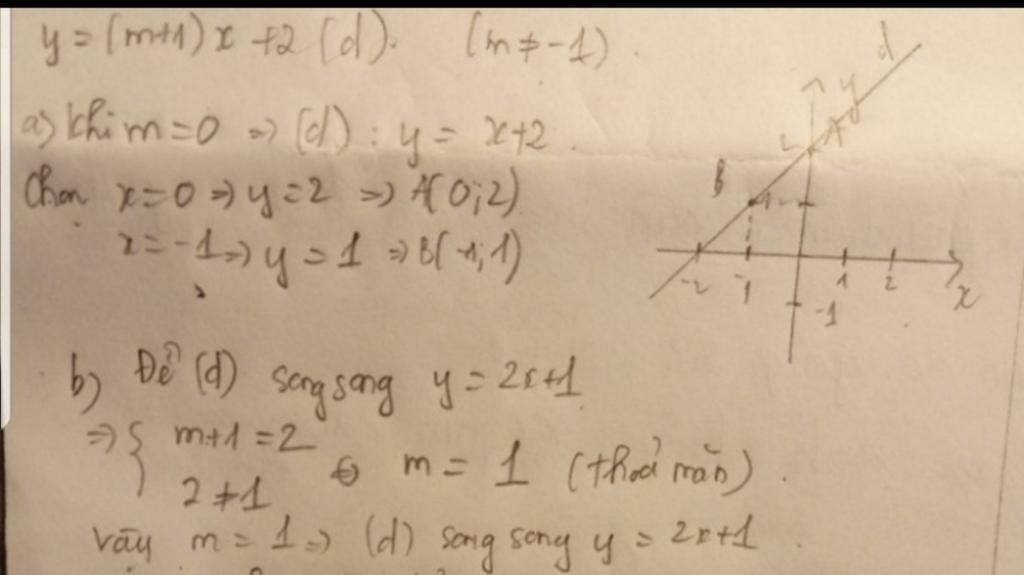 y = (m+1) x + 2 (d). (m ≠ -1).
a) khi m = 0 => (d) : y = x+2.
Chọn x = 0 => y = 2 => A(0;2)
x = -1 => y = 1 => B(-1;1)
d
y
2 A
B 1
-2 -1 1 2 x
-1
b) Để (d) song song y = 2x+1
=> { m+1 = 2
2 ≠ 1
⇔ m = 1 (thoả mãn).
vậy m = 1 => (d) song song y = 2x+1.